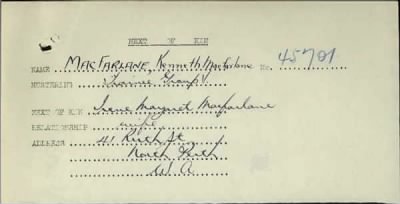 NEXT OF KIN
NAME MACFARLANE, Kenneth Macfarlane No. 45701
MUSTERING Trainee Group V.
NEXT OF KIN Irene Margaret Macfarlane
RELATIONSHIP wife
ADDRESS 41 Ruth St
North Perth
W.A